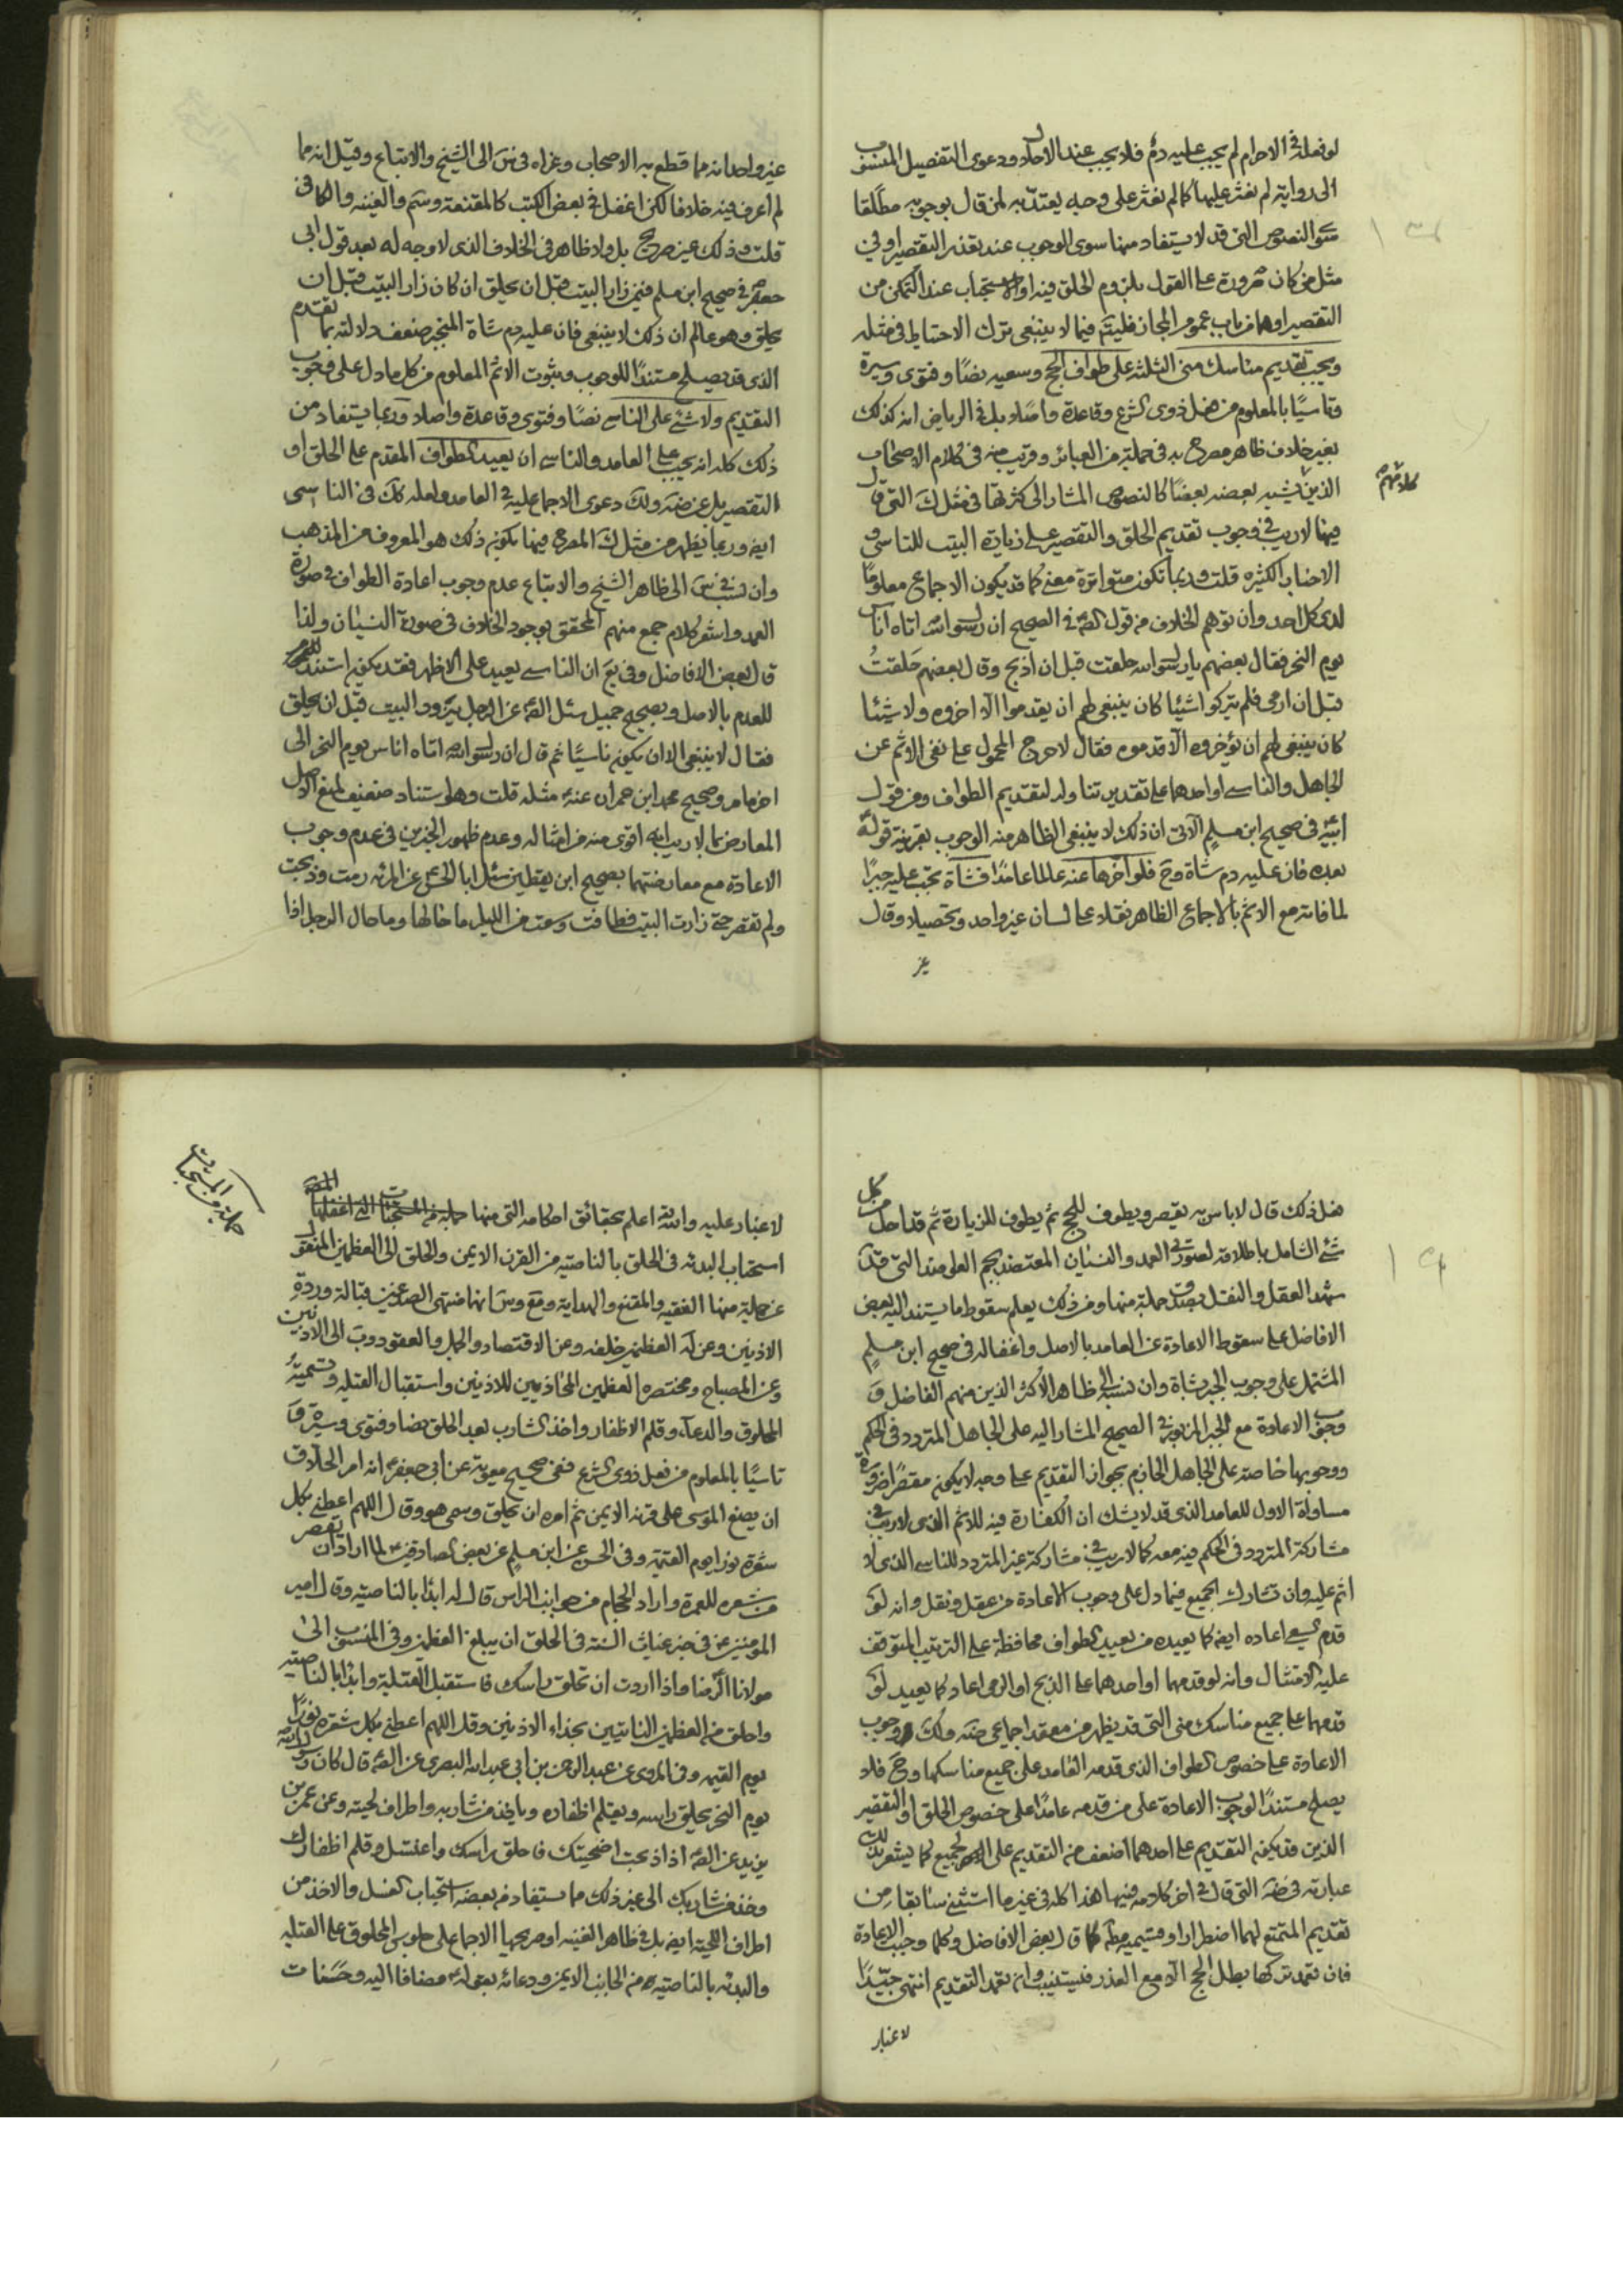 لو فعله في الاحرام لم يجب عليه دم فلا يجب عند الاحلال ودعوى التفصيل المنسوب
الى رواية لم نعثر عليها كما لم نعثر على وجه يعتد به لمن قال بوجوبه مطلقا
سوى النصوص التي قد لا يستفاد منها سوى الوجوب عند تعذر التقصير او في
مثل من كان صرورة على القول بلزوم الحلق فيه او الاستحباب عند التمكن من
التقصير او هما من باب عموم المجاز فليتم فيما لا ينبغي ترك الاحتياط في مثله
ويجب تقديم مناسك منى الثلثة على طواف الحج وسعيه نصا وفتوى وسيرة
وتاسيا بالمعلوم من فعل ذوى الشرع وقاعدة واصلا بل في الرياض انه كذلك
بغير خلاف ظاهر مصرح به في جملة من العبائر وقريب منه في كلام الاصحاب
كلامهم
الذين يشبه بعضه بعضا كالنصوص المشار الى كثرتها في مثل ك التي قال
فيها لا ريب في وجوب تقديم الحلق والتقصير على زيارة البيت للتاسي و
الاخبار الكثيرة قلت وربما تكون متواترة معنى كما قد يكون الاجماع معلوما
لدى كل احد وان توهم الخلاف من قول الصم في الصحيح ان رسول الله اتاه اناس
يوم النحر فقال بعضهم يا رسول الله حلقت قبل ان اذبح وقال بعضهم حلقت
قبل ان ارمى فلم يتركوا شيئا كان ينبغي لهم ان يقدموا الا اخروه ولا شيئا
كان ينبغي لهم ان يؤخروه الا قدموه فقال لا حرج المحمول على نفي الاثم عن
الجاهل والناسي او احدهما على تقدير تناوله لتقديم الطواف ومن قول
ابيه في صحيح ابن مسلم الاتي ان ذلك لا ينبغي الظاهر منه الوجوب بقرينة قوله
بعده فان عليه دم شاة وح فلو اخرها عنه عالما عامدا فشاة تجب عليه جبرا
لما فاته مع الاثم بالاجماع الظاهر نقلا على لسان غير واحد وتحصيلا وقال
غير
غير واحد انه مما قطع به الاصحاب وعزاه في س الى الشيخ والاتباع وقيل انه مما
لم اعرف فيه خلافا لكن اغفل في بعض الكتب كالمقنعة وسم والغنيه والكافي
قلت وذلك غير صريح بل ولا ظاهر في الخلاف الذى لا وجه له بعد قول ابي
جعفر في صحيح ابن مسلم فيمن زار البيت قبل ان يحلق ان كان زار البيت قبل ان
يحلق وهو عالم ان ذلك لا ينبغي فان عليه دم شاة المنجبر ضعف دلالته بما تقدم
الذى قد يصلح مستندا للوجوب وبثبوت الاثم المعلوم من كل ما دل على وجوب
التقديم ولا شئ على الناسي نصا وفتوى وقاعدة واصلا وربما يستفاد من
ذلك كله انه يجب على العامد والناسي ان يعيد الطواف المقدم على الحلق او
التقصير بل عن ضه ولك دعوى الاجماع عليه في العامد ولعله كك في الناسي
ايضا وربما يظهر من مثل ك المصرح فيها بكونه ذلك هو المعروف من المذهب
وان نسب في س الى ظاهر الشيخ والاتباع عدم وجوب اعادة الطواف في صورة
العمد واشعر كلام جمع منهم المحقق بوجود الخلاف في صورة النسيان ولذا
قال بعض الافاضل وفي يع ان الناسي يعيد على الاظهر فقد يكون استند
للعدم بالاصل وبصحيح جميل سئل الصم عن الرجل يزور البيت قبل ان يحلق
فقال لا ينبغي الا ان يكون ناسيا ثم قال ان رسول الله اتاه اناس يوم النحر الى
اخر ما مر وصحيح محمد ابن حمران عنه مثله قلت وهو استناد ضعيف لمنع الاصل
المعارض بما لا ريب انه اقوى منه من امثاله وعدم ظهور الخبرين في عدم وجوب
الاعادة مع معارضتهما بصحيح ابن يقطين سئل ابا الحسن عن المرئة رمت وذبحت
ولم تقصر حتى زارت البيت فطافت وسعت من الليل ما حالها وما حال الرجل اذا
فعل ذلك قال لا باس به يقصر ويطوف للحج ثم يطوف للزيارة ثم قد احل من كل
شئ الشامل باطلاقه لصورتي العمد والنسيان المعتضد بحكم العلى منه التي قد
شهد العقل والنقل بصدق جملة منها ومن ذلك يعلم سقوط ما يستند اليه بعض
الافاضل على سقوط الاعادة عن العامد بالاصل واغفاله في صحيح ابن مسلم
المشتمل على وجوب الجبر بشاة وان نسب الى ظاهر الاكثر الذين منهم الفاضل و
وجوب الاعادة مع الجبر المزبور في الصحيح المشار اليه على الجاهل المتردد في الحكم
ووجوبها خاصة على الجاهل الجازم بجواز التقديم على وجه لا يكون مقصرا ضرورة
مساواة الاول للعامد الذى قد لا يشك ان الكفارة فيه للاثم الذى لا ريب في
مشاركة المتردد في الحكم فيه معه كما لا ريب في مشاركة غير المتردد للناسي الذى لا
اثم عليه وان تشارك الجميع فيما دل على وجوب الاعادة من عقل ونقل وانه لو
قدم السعي اعاده ايضا كما يعيده من يعيد الطواف محافظة على الترتيب المتوقف
عليه الامتثال وانه لو قدمهما او احدهما على الذبح او الرمى اعاد كما يعيد لو
قدمهما على جميع مناسك منى التي قد يظهر من معقد اجماعي ضه ولك وجوب
الاعادة على خصوص الطواف الذى قدمه العامد على جميع مناسكها وح فلا
يصلح مستندا لوجوب الاعادة على من قدمه عامدا على خصوص الحلق او التقصير
الذين قد يكون التقديم على احدهما اضعف من التقديم على الجميع كما يشعر بذلك
عبارته في ضه التي قال في اخر كلامه فيها هذا كله في غير ما استثنى سابقا من
تقديم المتمتع لهما اضطرارا وقسيميه مطلقا كما قال بعض الافاضل وكلما وجبت الاعادة
فان تعمد تركها بطل الحج الا مع العذر فيستنيب وان تعمد التقديم انتهى جيدا
لا غبار
لا غبار عليه والله اعلم بحقائق احكامه التي منها جملة من المستحبات التي اغفلها المصنف
جملة من المستحبات
استحباب البدئه في الحلق بالناصية من القرن الايمن والحلق الى العظمين المنقول
عن جملة منها الفقيه والمقنع والهداية ومنتهى الصدغين قبالة وتد
الاذنين وعن له العظمين خلفه وعن الاقتصاد والجمل والعقود ودوب الى الاذنين
وعن المصباح ومختصره العظمين المحاذيين للاذنين واستقبال القبله وتسمية
المحلوق والدعاء وقلم الاظفار واخذ الشارب بعد الحلق نصا وفتوى وسيرة و
تاسيا بالمعلوم من فعل ذوى الشرع ففي صحيح معوية عن ابي جعفر انه امر الحلاق
ان يضع الموسى على قرنه الايمن ثم امره ان يحلق وسمى هو وقال اللهم اعطني بكل
شعرة نورا يوم القيمة وفي الحسن عن ابن مسلم عن بعض الصادقين لما اراد ان يقصر
من شعره للعمرة واراد الحجام من جوانب الراس قال له ابدا بالناصية وقال امير
المؤمنين في خبر غياث السنة في الحلق ان يبلغ العظمين وفي المنسوب الى
مولانا الرضا واذا اردت ان تحلق راسك فاستقبل القبلة وابدا بالناصية
واحلق من العظمين النابتين بحذاء الاذنين وقل اللهم اعطني بكل شعرة نورا
يوم القيمه وفي المروى عن عبد الرحمن بن ابي عبد الله البصري عن الصم قال كان رسول الله
يوم النحر يحلق راسه ويقلم اظفاره وياخذ من شاربه واطراف لحيته وعن عمر بن
يزيد عن الصم اذا ذبحت اضحيتك فاحلق راسك واغتسل وقلم اظفارك
وخذ من شاربك الى غير ذلك مما يستفاد من بعضه استحباب الغسل والاخذ من
اطراف اللحية ايضا بل في ظاهر الغنيه او صريحها الاجماع على جلوس المحلوق على القبله
والبدئه بالناصية من الجانب الايمن ودعائه بقوله مضافا اليه وحسنات